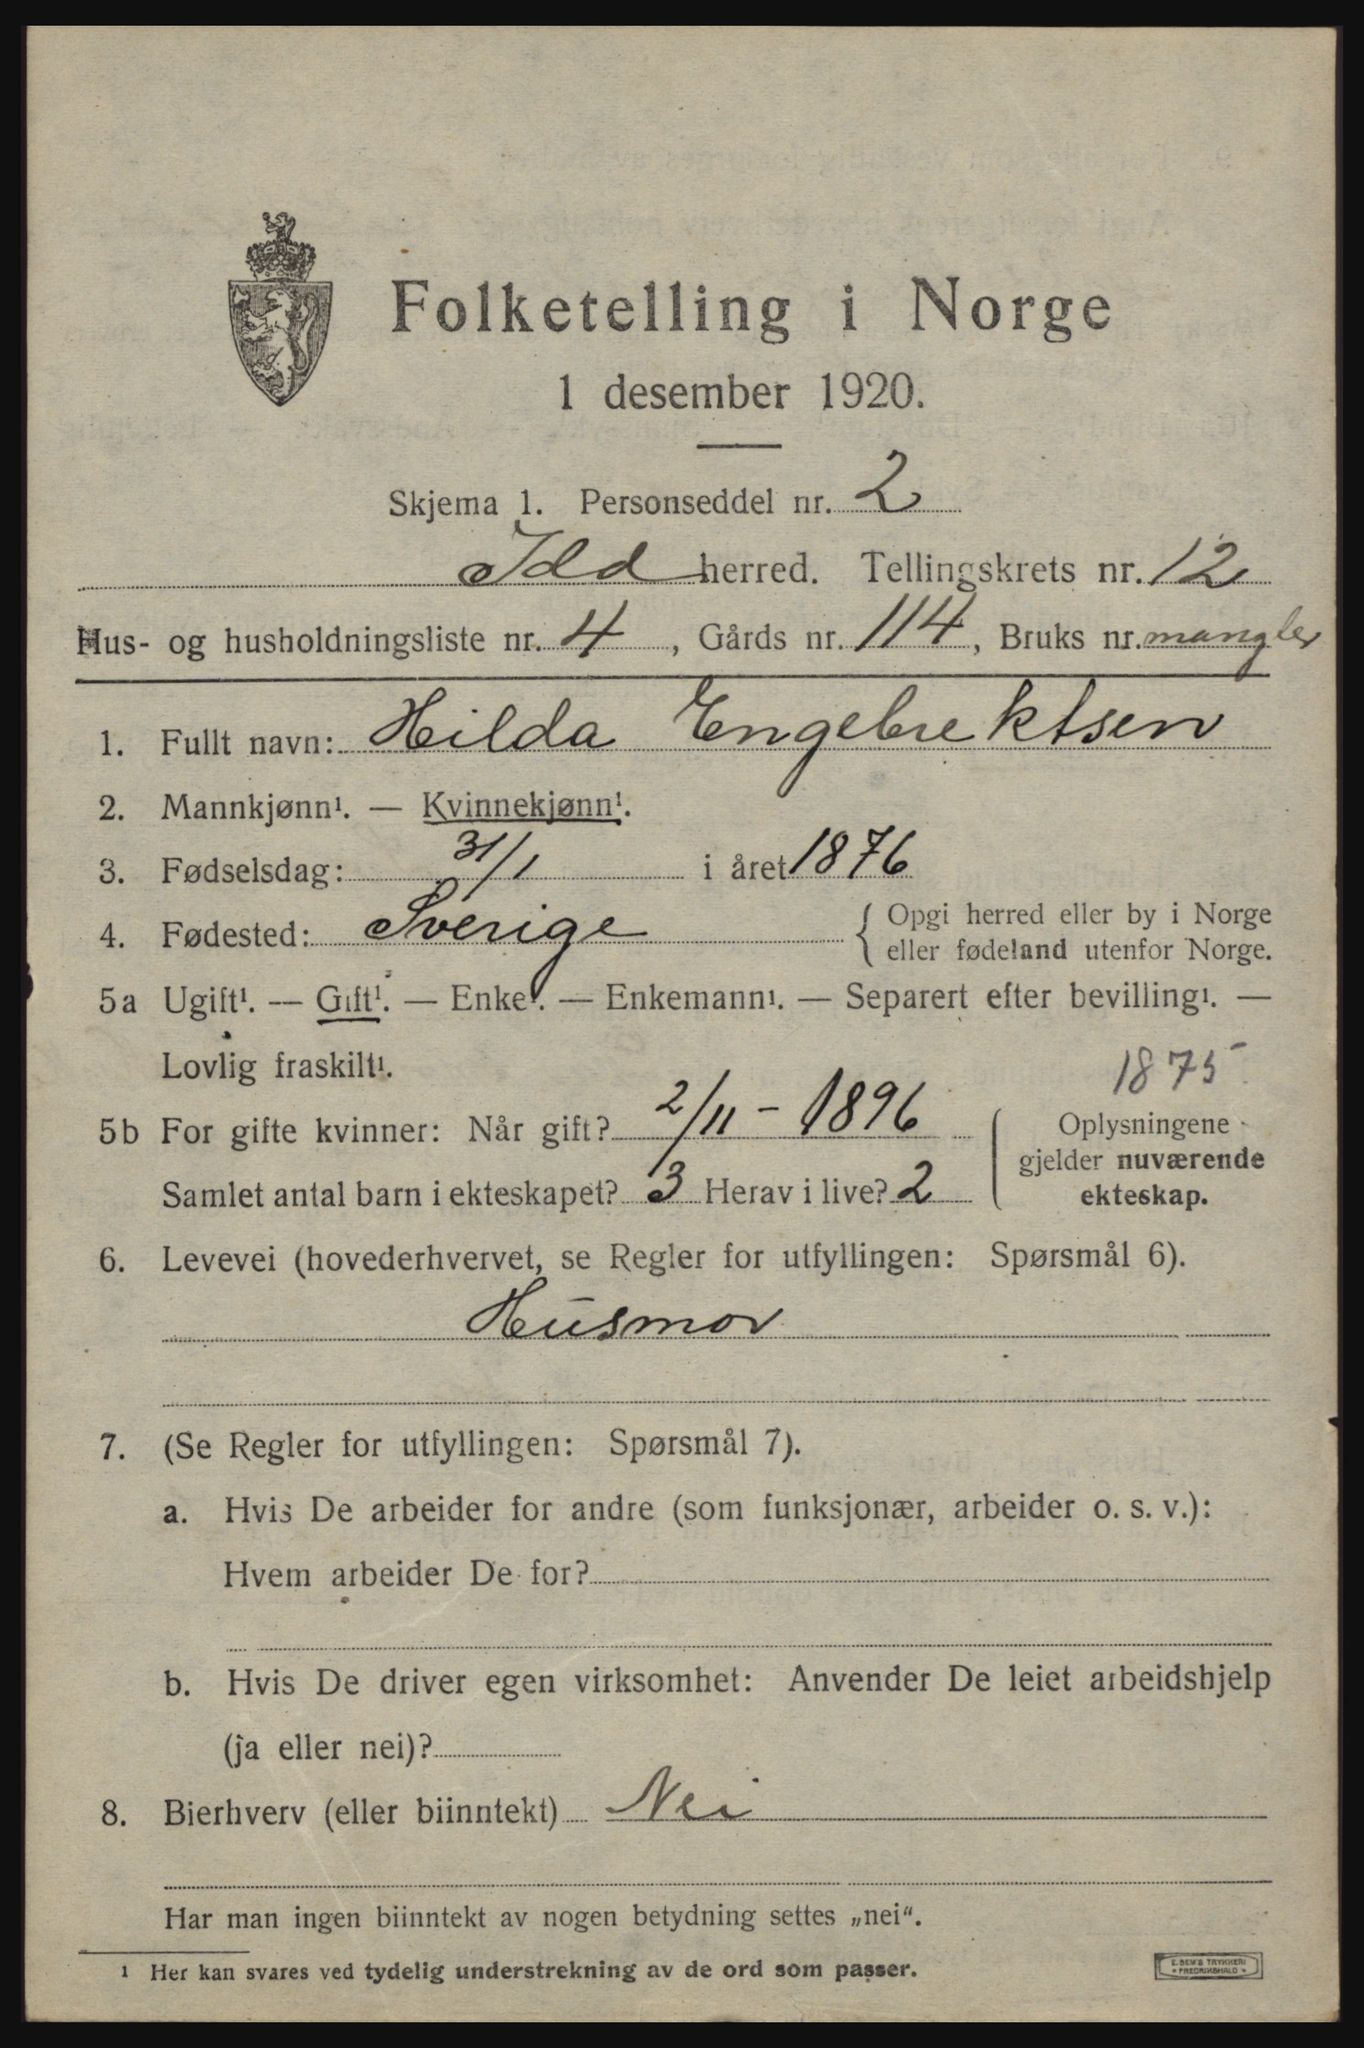 Folketelling i Norge
1 desember 1920.
Skjema 1. Personseddel nr. 2
Idd herred. Tellingskrets nr. 12
Hus- og husholdningsliste nr. 4, Gårds nr. 114, Bruks nr. mangler
1. Fullt navn: Hilda Engebrektsen
2. Mannkjønn¹. — Kvinnekjønn¹.
3. Fødselsdag: 31/1 i året 1876
4. Fødested: Sverige { Opgi herred eller by i Norge
eller fødeland utenfor Norge.
5a Ugift¹. — Gift¹. — Enke¹. — Enkemann¹. — Separert efter bevilling¹. —
Lovlig fraskilt¹.
1875
5b For gifte kvinner: Når gift? 2/11 - 1896
Samlet antal barn i ekteskapet? 3 Herav i live? 2
Oplysningene
gjelder nuværende
ekteskap.
6. Levevei (hovederhvervet, se Regler for utfyllingen: Spørsmål 6).
Husmor
7. (Se Regler for utfyllingen: Spørsmål 7).
a. Hvis De arbeider for andre (som funksjonær, arbeider o. s. v.):
Hvem arbeider De for?
b. Hvis De driver egen virksomhet: Anvender De leiet arbeidshjelp
(ja eller nei)?
8. Bierhverv (eller biinntekt) Nei
Har man ingen biinntekt av nogen betydning settes „nei“.
¹ Her kan svares ved tydelig understrekning av de ord som passer.
E. SEM'S TRYKKERI
• FREDRIKSHALD •